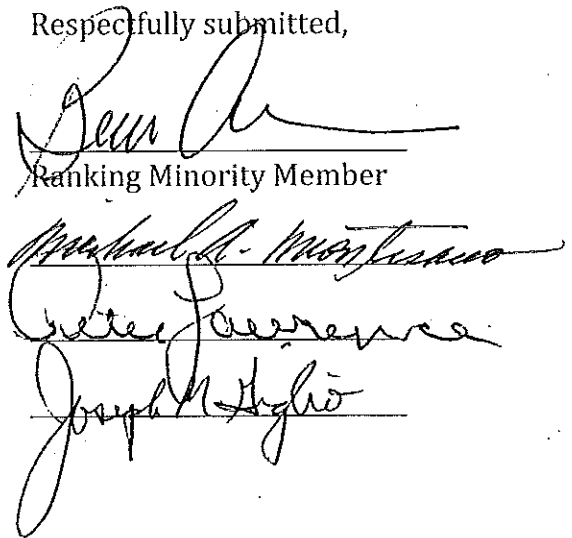 Respectfully submitted,
Ranking Minority Member
Michael A. Montesano
Peter Lawrence
Joseph M Giglio